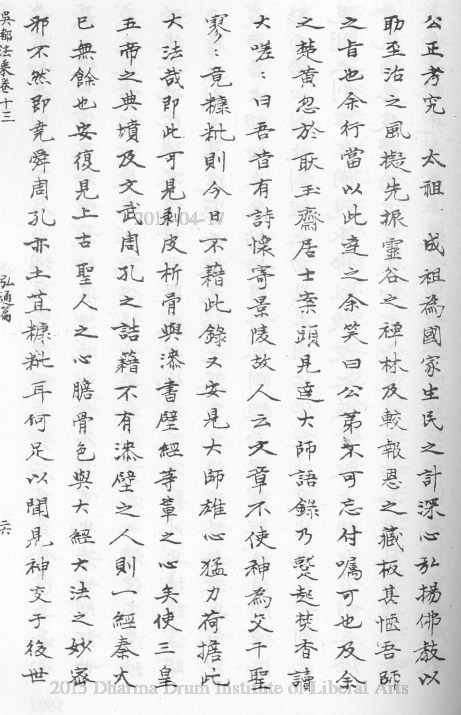 公正考究　太祖　成祖為國家生民之計深心弘揚佛教以
助至治之風擬先振靈谷之禪林及較報恩之藏板甚愜吾師
之旨也余行當以此達之余笑曰公第不可忘付囑可也及余
之楚黃忽於耿玉齋居士案頭見達大師語錄乃蹙起焚香讀
大嗟：曰吾昔有詩懷寄景陵故人云文章不使神為父千聖
寥：竟糠粃則今日不藉此錄又安見大師雄心猛力荷擔此
大法哉即此可見剥皮析骨與漆書壁經等輩之心矣使三皇
五帝之典墳及文武周孔之誥籍不有漆壁之人則一經秦火
已無餘也安復見上古聖人之心膽骨色與大經大法之妙密
邪不然即堯舜周孔亦土苴糠粃耳何足以聞見神交于後世
吳都法乘卷十三　弘通篇　六
2013-04-17
2013 Dharma Drum Institute of Liberal Arts